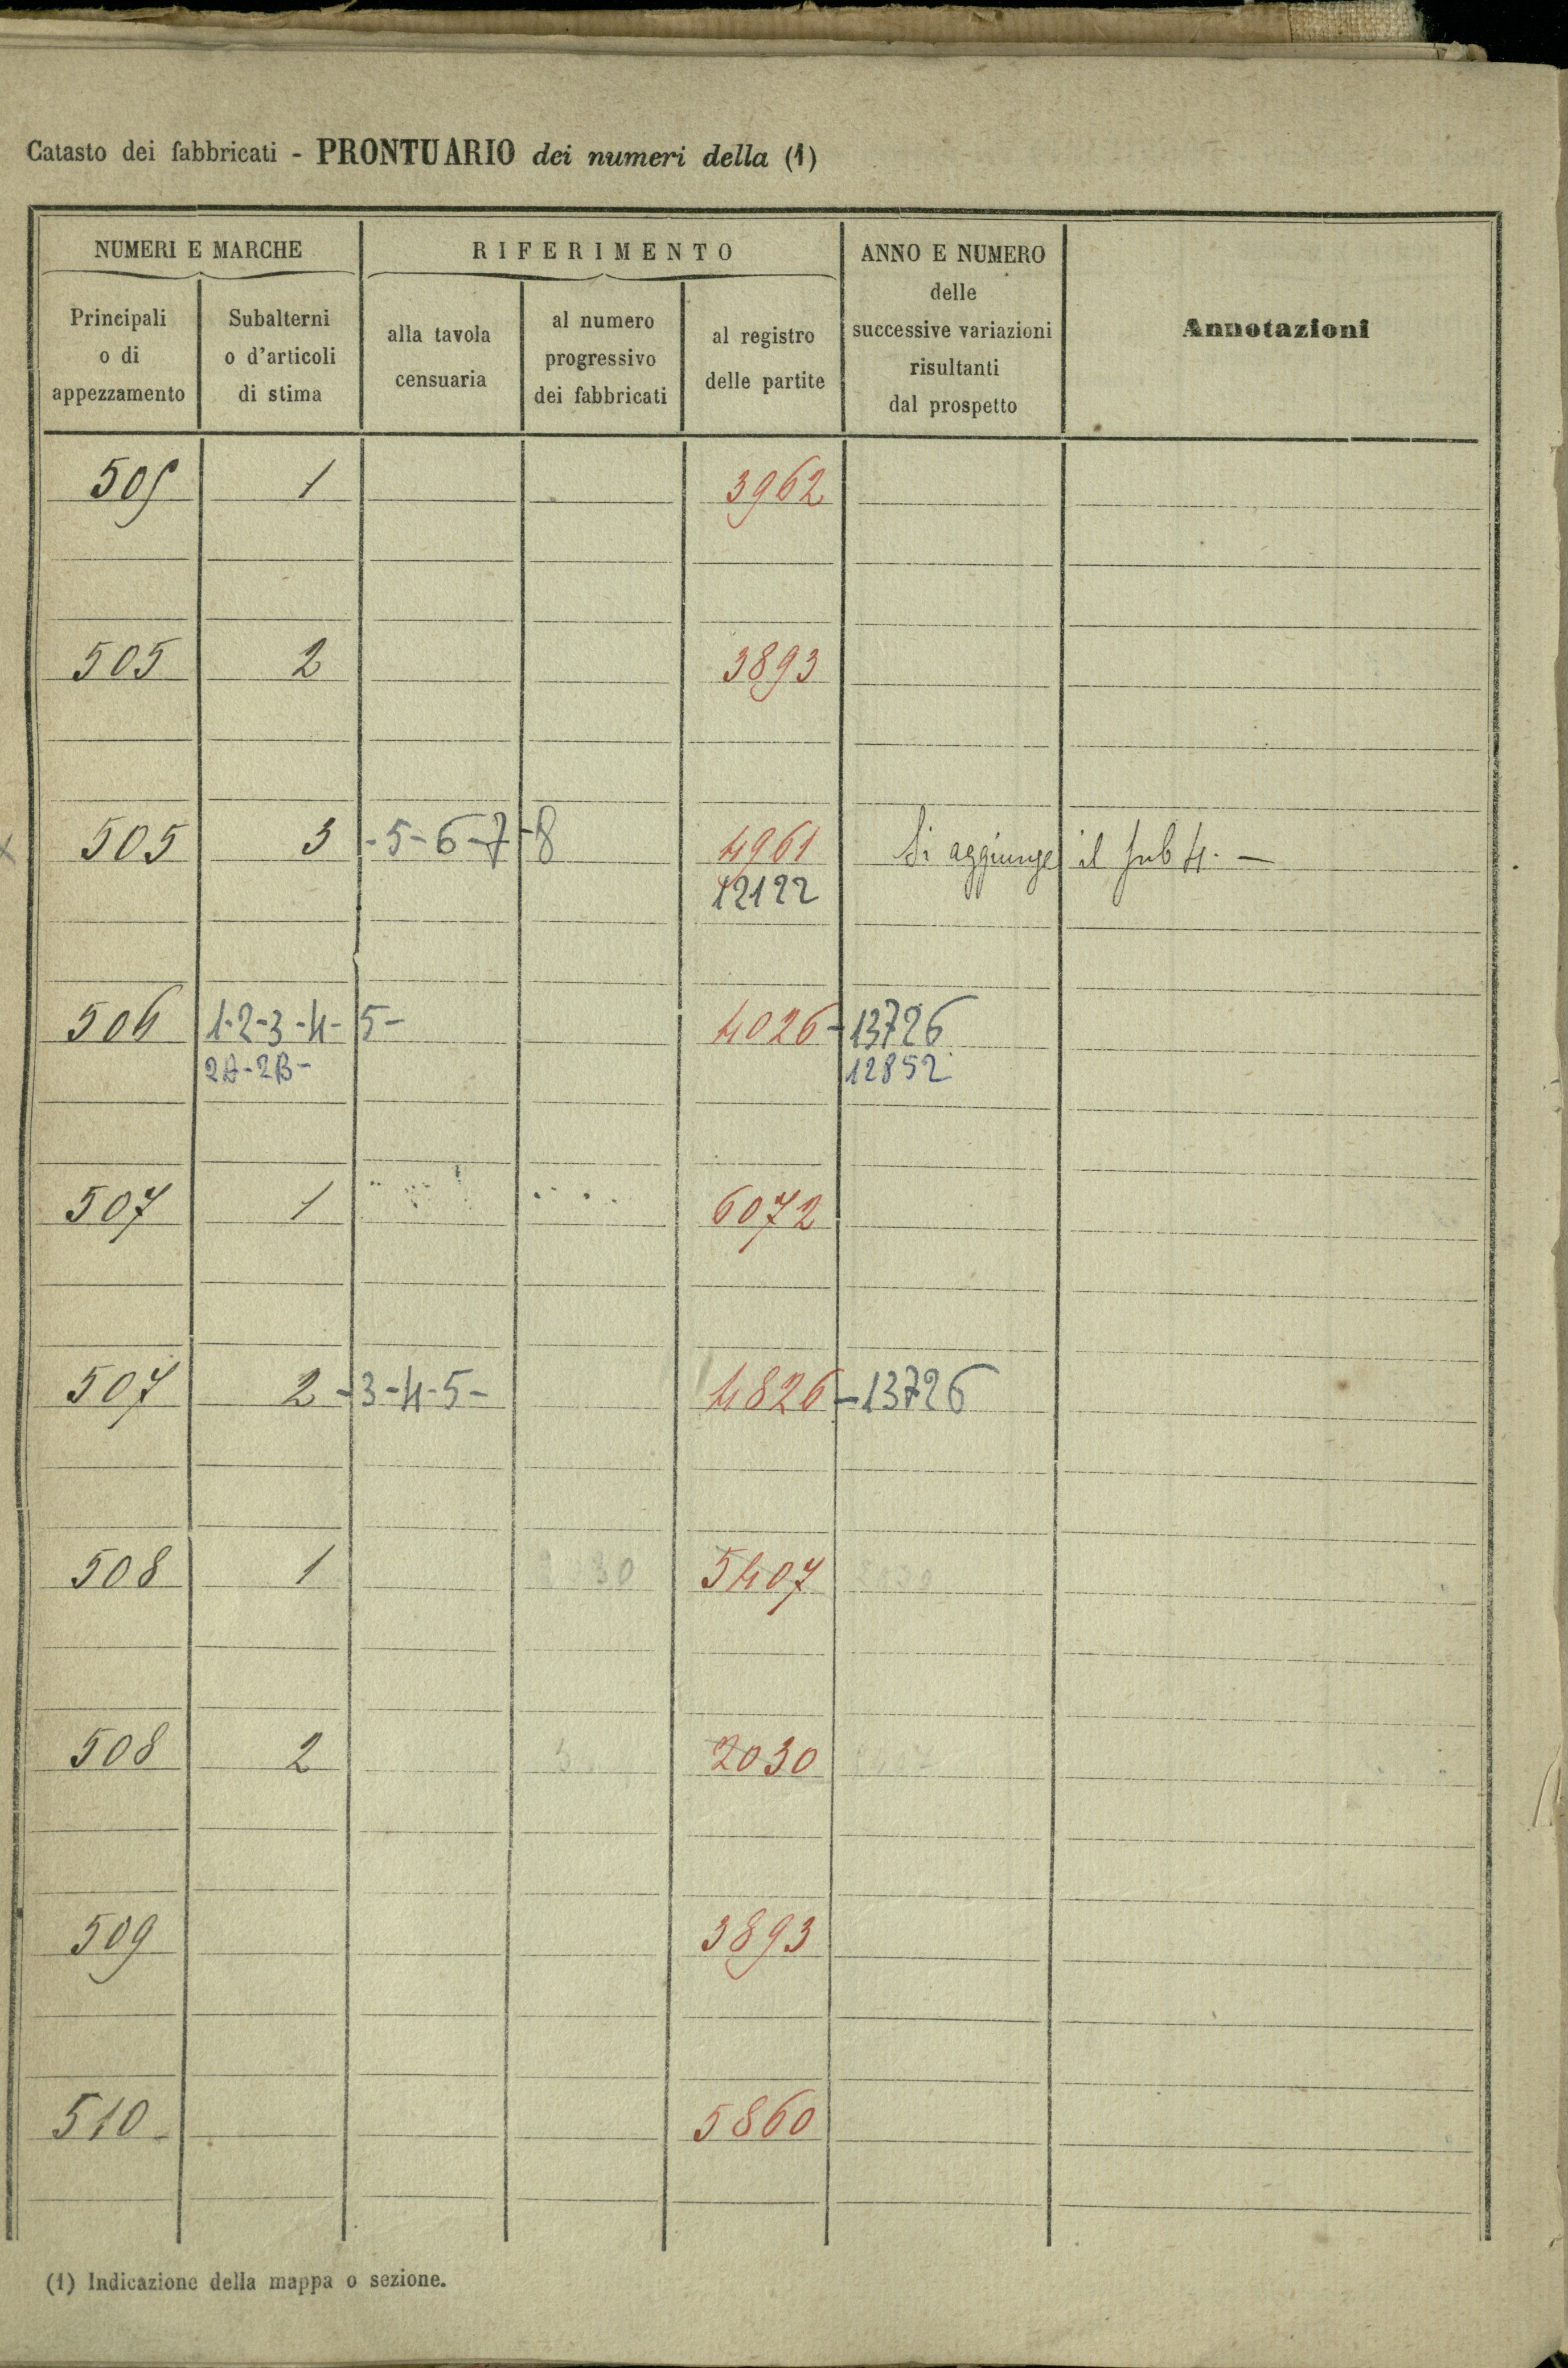 Catasto dei fabbricati - PRONTUARIO dei numeri della (1)
NUMERI E MARCHE
RIFERIMENTO
ANNO E NUMERO
delle
successive variazioni
risultanti
dal prospetto
Annotazioni
Principali
o di
appezzamento
Subalterni
o d'articoli
di stima
alla tavola
censuaria
al numero
progressivo
dei fabbricati
al registro
delle partite
505 1 3962
505 2 3893
x 505 3 -5-6-7-8 4961 Si aggiunge il sub 4. —
12122
506 1-2-3-4-5- 4026-13726
2A-2B- 12852
507 1 6072
507 2-3-4-5- 4826-13726
508 1 5407
508 2 2030
509 3893
510 5860
(1) Indicazione della mappa o sezione.